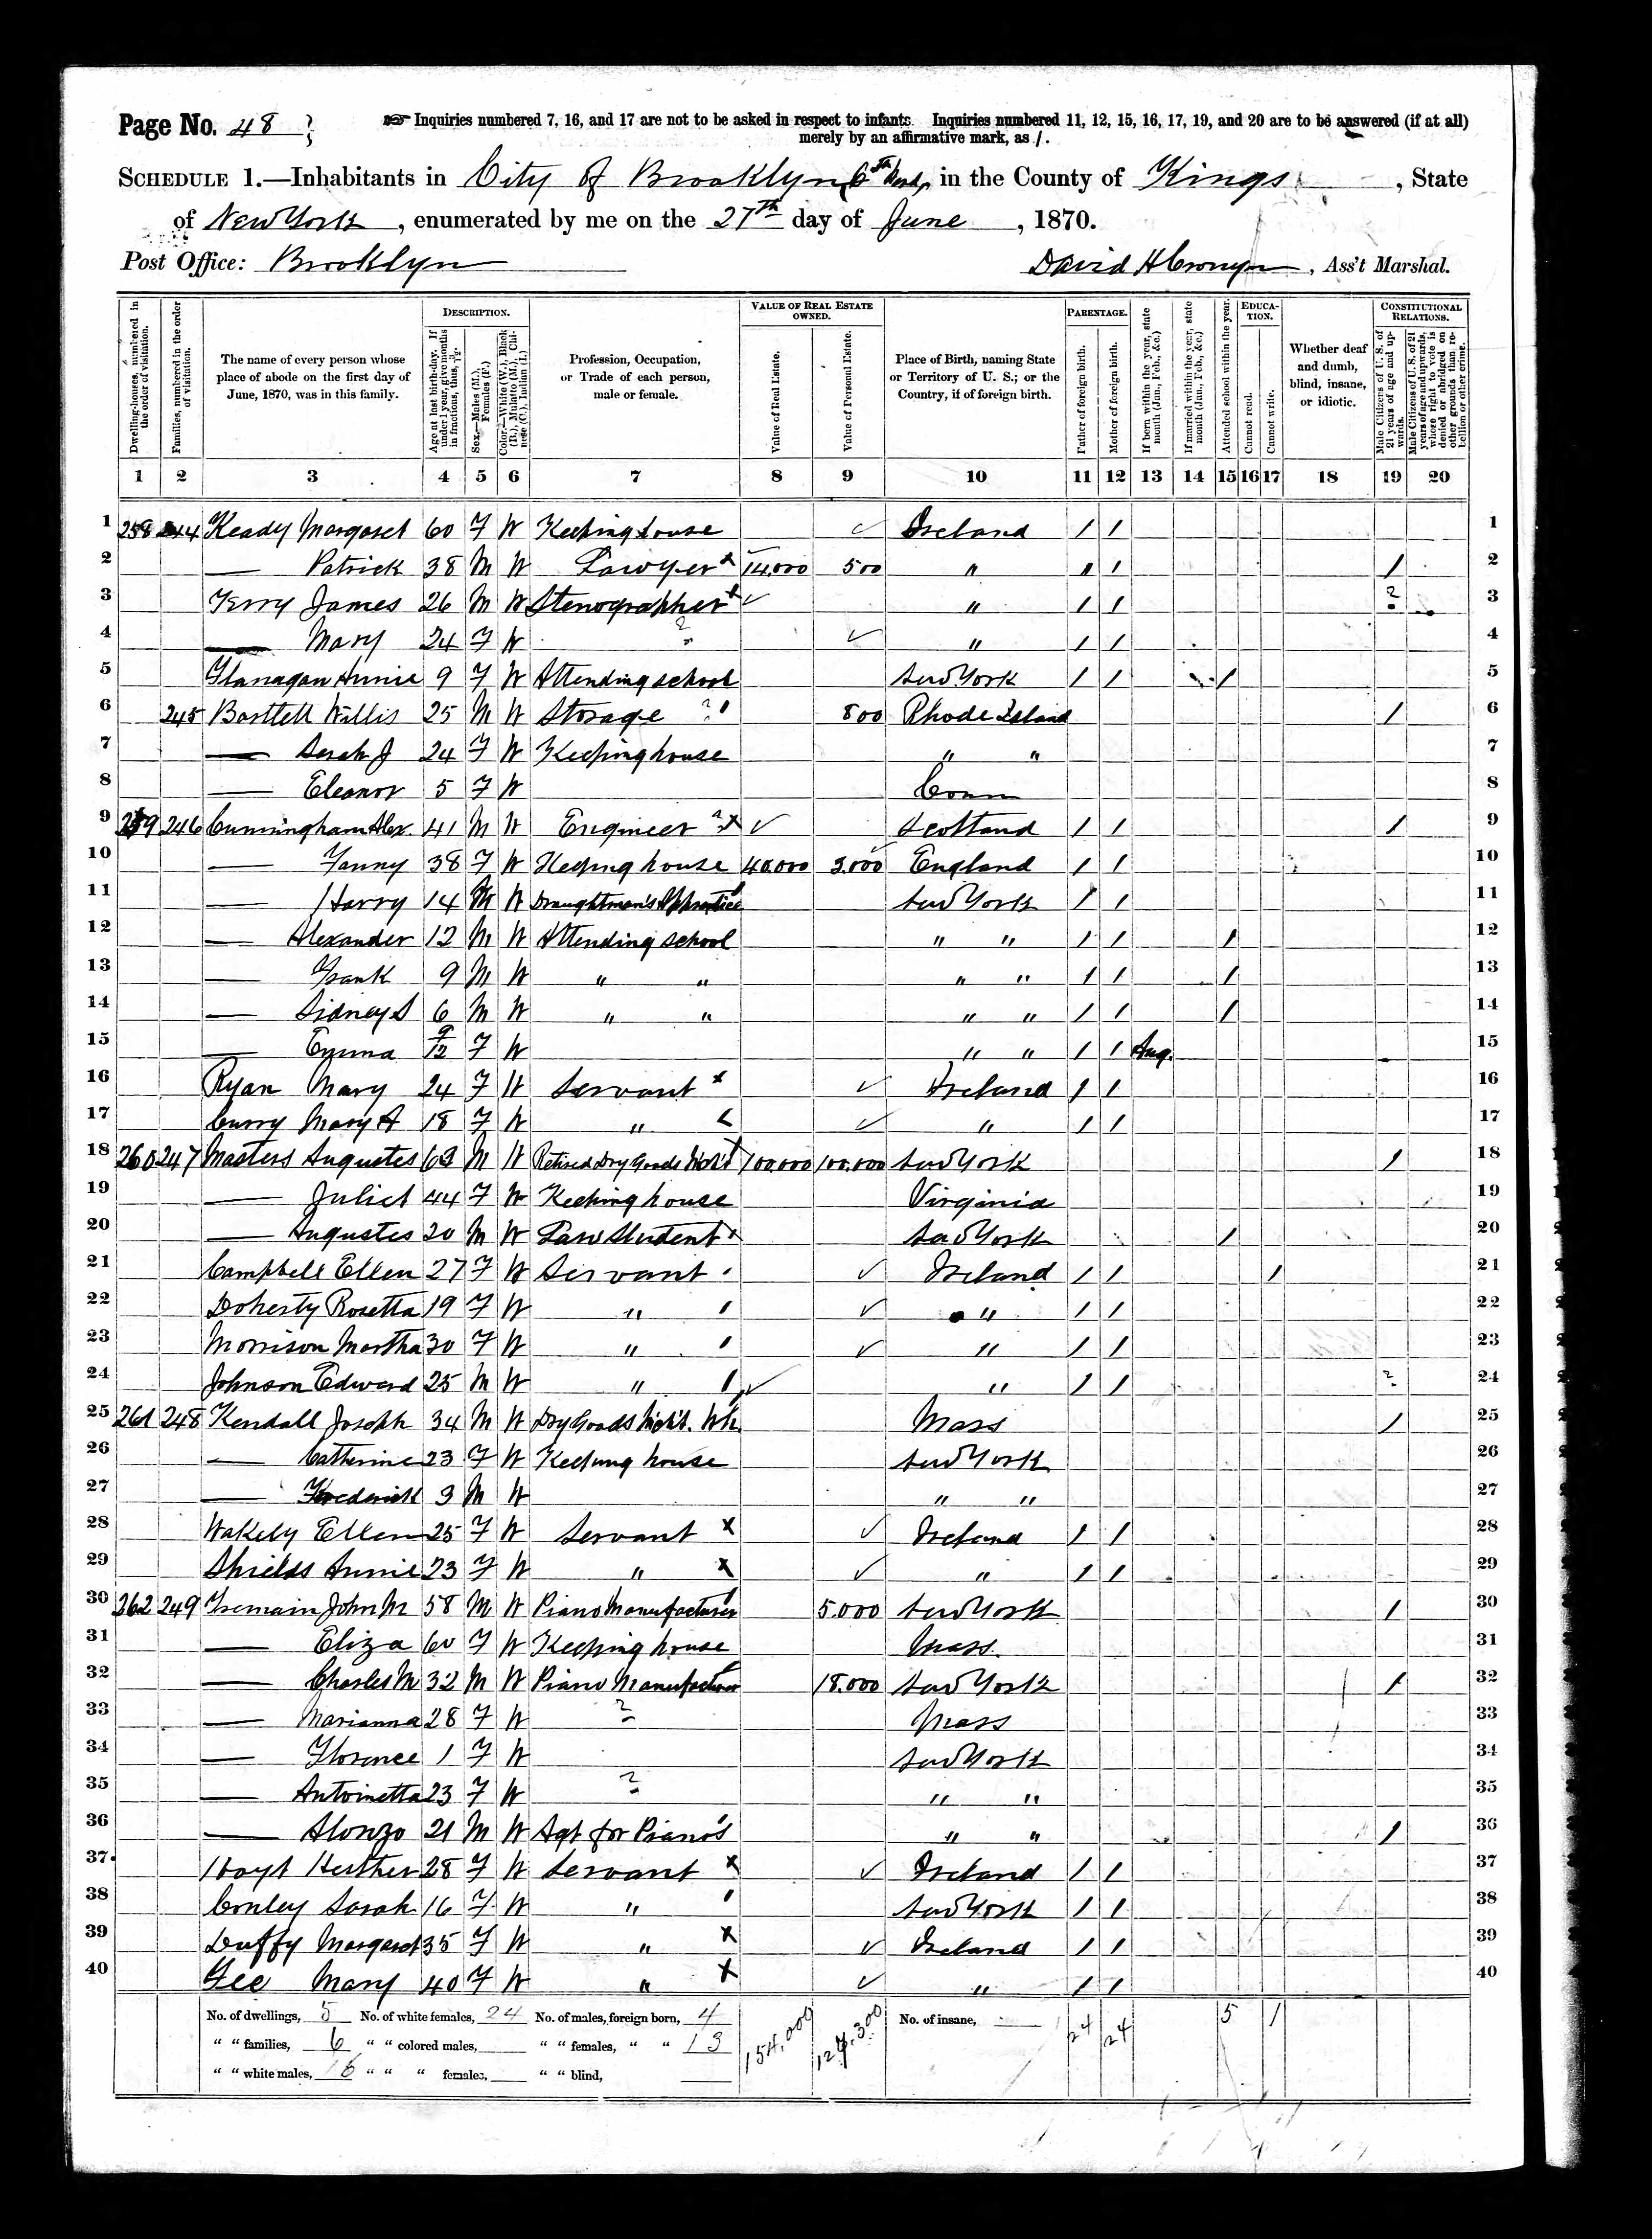 Page No. 48
Inquiries numbered 7, 16, and 17 are not to be asked in respect to infants. Inquiries numbered 11, 12, 15, 16, 17, 19, and 20 are to be answered (if at all)
merely by an affirmative mark, as /.
SCHEDULE 1.—Inhabitants in City of Brooklyn, 6th Ward, in the County of Kings, State
of New York, enumerated by me on the 27th day of June, 1870.
Post Office: Brooklyn
David H Cronyn, Ass't Marshal.
DESCRIPTION. VALUE OF REAL ESTATE OWNED. PARENTAGE. EDUCATION. CONSTITUTIONAL RELATIONS.
Dwelling-houses, numbered in the order of visitation.
Families, numbered in the order of visitation.
The name of every person whose place of abode on the first day of June, 1870, was in this family.
Age at last birth-day. If under 1 year, give months in fractions, thus, 3/12.
Sex.—Males (M.), Females (F.)
Color.—White (W.), Black (B.), Mulatto (M.), Chinese (C.), Indian (I.)
Profession, Occupation, or Trade of each person, male or female.
Value of Real Estate.
Value of Personal Estate.
Place of Birth, naming State or Territory of U. S.; or the Country, if of foreign birth.
Father of foreign birth.
Mother of foreign birth.
If born within the year, state month (Jan., Feb., &c.)
If married within the year, state month (Jan., Feb., &c.)
Attended school within the year.
Cannot read.
Cannot write.
Whether deaf and dumb, blind, insane, or idiotic.
Male Citizens of U. S. of 21 years of age and upwards.
Male Citizens of U. S. of 21 years of age and upwards, whose right to vote is denied or abridged on other grounds than rebellion or other crime.
1 2 3 4 5 6 7 8 9 10 11 12 13 14 15 16 17 18 19 20
1 258 244 Keady Margaret 60 F W Keeping house ✓ Ireland / / 1
2 — Patrick 38 M W Lawyer x 14,000 500 " / / / 2
3 Terry James 26 M W Stenographer x ✓ " / / ? 3
4 — Mary 24 F W ? ✓ " / / 4
5 Flanagan Annie 9 F W Attending school New York / / / 5
6 245 Bartlett Willis 25 M W Storage ? / 800 Rhode Island / 6
7 — Sarah J 24 F W Keeping house " " 7
8 — Eleanor 5 F W Conn 8
9 259 246 Cunningham Alex. 41 M W Engineer ? x ✓ Scotland / / / 9
10 — Fanny 38 F W Keeping house 40,000 3,000 England / / 10
11 — Harry 14 M W Draughtman's Apprentice New York / / 11
12 — Alexander 12 M W Attending school " " / / / 12
13 — Frank 9 M W " " " " / / / 13
14 — Sidney S 6 M W " " " " / / / 14
15 — Emma 9/12 F W " " / / Aug. 15
16 Ryan Mary 24 F W Servant x ✓ Ireland / / 16
17 Curry Mary A 18 F W " ✓ " / / 17
18 260 247 Masters Augustes 63 M W Retired Dry Goods Mch't 100,000 100,000 New York / 18
19 — Juliet 44 F W Keeping house Virginia 19
20 — Augustes 20 M W Law Student x New York / 20
21 Campbell Ellen 27 F W Servant ✓ Ireland / / / 21
22 Doherty Rosetta 19 F W " / ✓ " / / 22
23 Morrison Martha 30 F W " / ✓ " / / 23
24 Johnson Edward 25 M W " / ✓ " / / ? 24
25 261 248 Kendall Joseph 34 M W Dry Goods Mch't. Wh. Mass / 25
26 — Catherine 23 F W Keeping house New York 26
27 — Frederick 3 M W " " 27
28 Wakely Ellen 25 F W Servant x ✓ Ireland / / 28
29 Shields Annie 23 F W " x ✓ " / / 29
30 262 249 Tremain John M 58 M W Piano Manufacturer 5,000 New York / 30
31 — Eliza 60 F W Keeping house Mass. 31
32 — Charles M 32 M W Piano Manufacturer 18,000 New York / 32
33 — Marianna 28 F W ? Mass 33
34 — Florence 1 F W New York 34
35 — Antoinetta 23 F W ? " " 35
36 — Alonzo 21 M W Agt for Pianos " " / 36
37 Hoyt Hesther 28 F W Servant x ✓ Ireland / / 37
38 Conley Sarah 16 F W " / New York / / 38
39 Duffy Margaret 35 F W " x ✓ Ireland / / 39
40 Gee Mary 40 F W " x ✓ " / / 40
No. of dwellings, 5 No. of white females, 24 No. of males, foreign born, 4 154,000 No. of insane, 24 24 5 1
" " families, 6 " " colored males, " " females, " " 13
" " white males, 16 " " " females, " " blind,